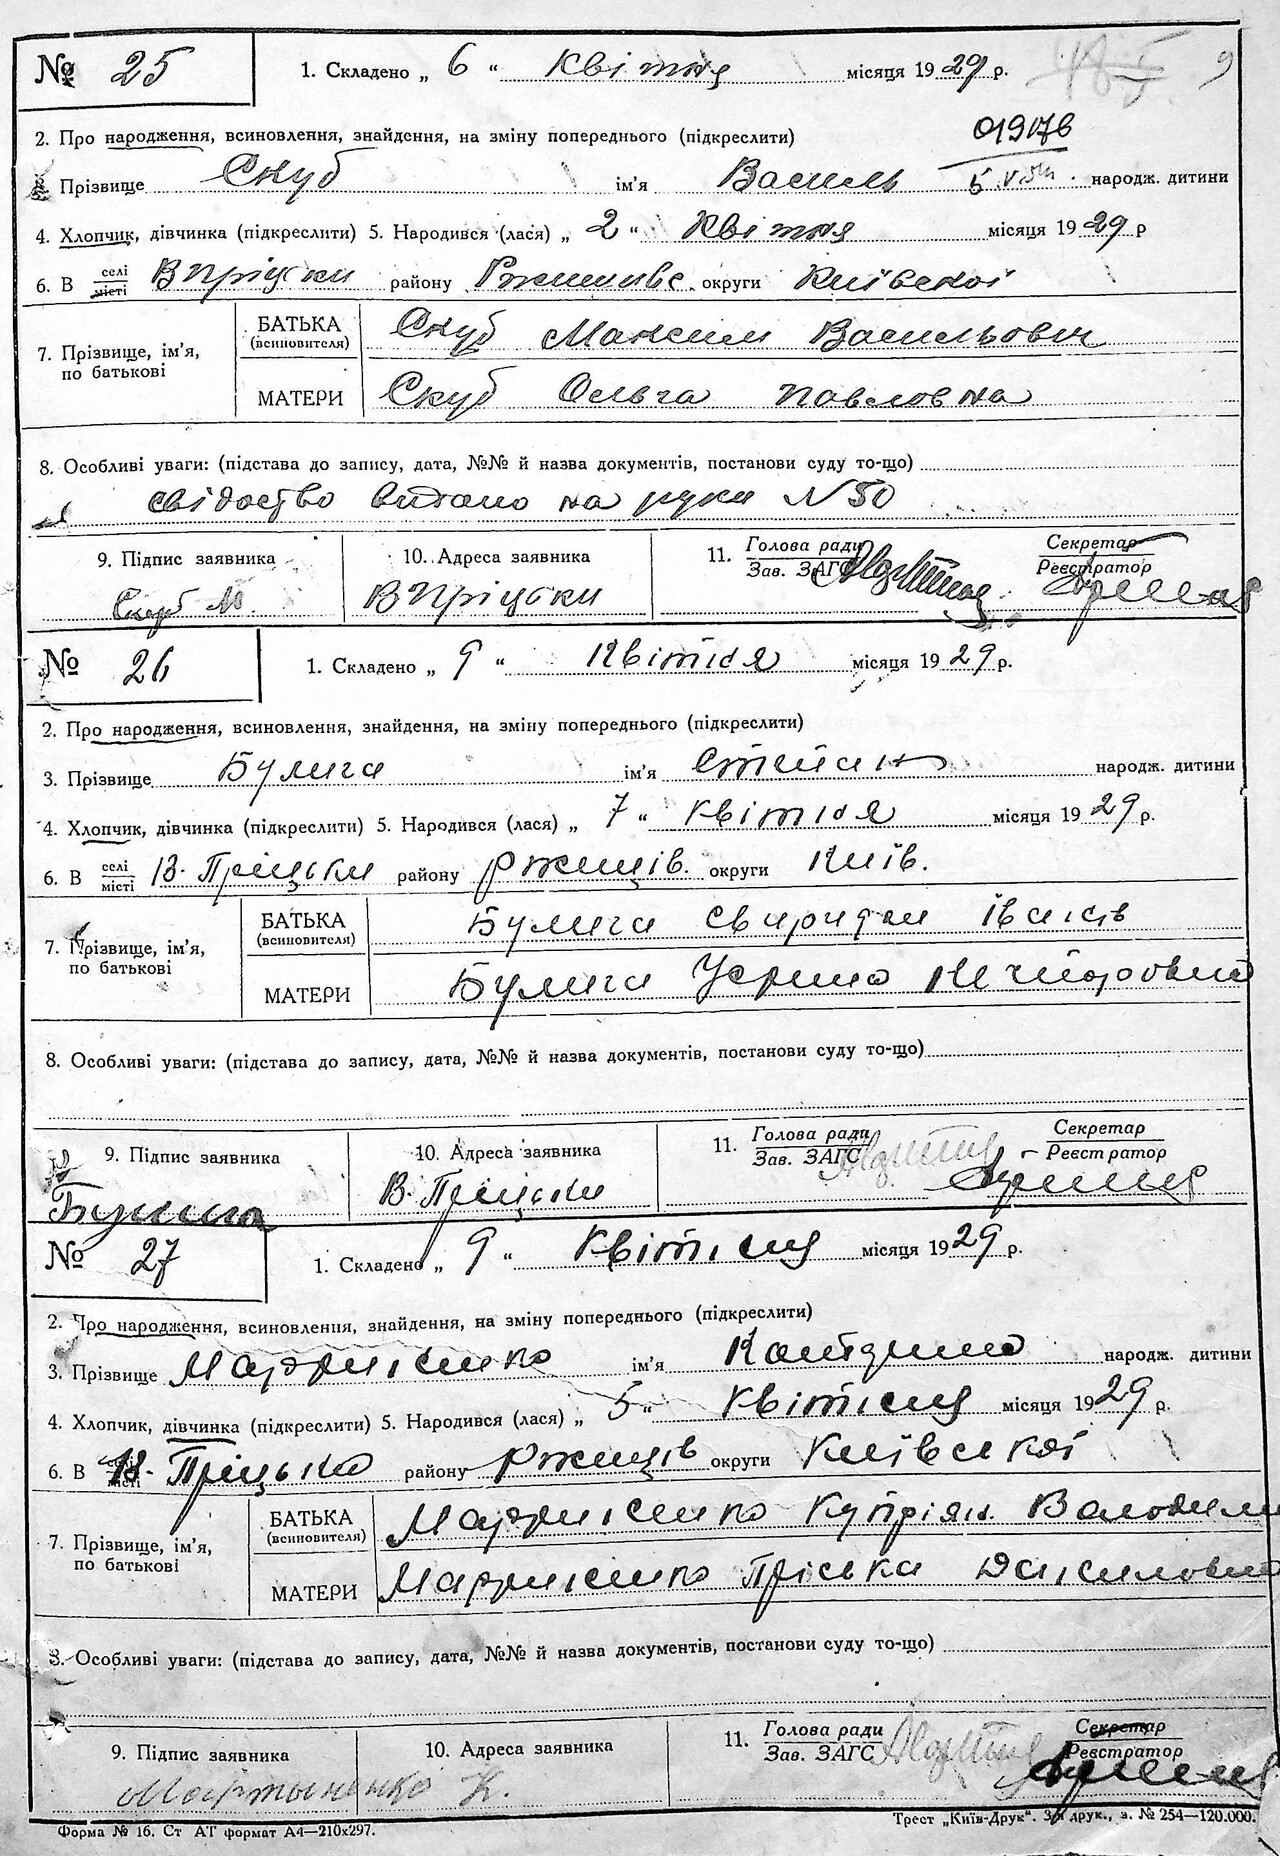 № 25 1. Складено „ 6 “ Квітня місяця 1929 р. 9
2. Про народження, всиновлення, знайдення, на зміну попереднього (підкреслити) 01907в
Прізвище Скуб ім'я Василь народж. дитини
4. Хлопчик, дівчинка (підкреслити) 5. Народився (лася) „ 2 “ Квітня місяця 1929 р
6. В селі місті В Пріцьки району округи Київської
7. Прізвище, ім'я, по батькові
БАТЬКА (всиновителя) Скуб Максим Васильович
МАТЕРИ Скуб Ольга Павловна
8. Особливі уваги: (підстава до запису, дата, №№ й назва документів, постанови суду то-що)
свідоство видано на руки N 50
9. Підпис заявника 10. Адреса заявника 11. Голова ради Зав. ЗАГС Секретар Реєстратор
Скуб М. В Пріцьки
№ 26 1. Складено „ 9 “ Квітня місяця 1929 р.
2. Про народження, всиновлення, знайдення, на зміну попереднього (підкреслити)
3. Прізвище Булига ім'я Степан народж. дитини
4. Хлопчик, дівчинка (підкреслити) 5. Народився (лася) „ 7 “ Квітня місяця 1929 р.
6. В селі місті В. Пріцьки району Ржищів. округи Київ.
7. Прізвище, ім'я, по батькові
БАТЬКА (всиновителя) Булига Свиридон Іванов
МАТЕРИ Булига
8. Особливі уваги: (підстава до запису, дата, №№ й назва документів, постанови суду то-що)
9. Підпис заявника 10. Адреса заявника 11. Голова ради Зав. ЗАГС Секретар Реєстратор
Булига В. Пріцьки
№ 27 1. Складено „ 9 “ Квітня місяця 1929 р.
2. Про народження, всиновлення, знайдення, на зміну попереднього (підкреслити)
3. Прізвище ім'я народж. дитини
4. Хлопчик, дівчинка (підкреслити) 5. Народився (лася) „ 5 “ Квітня місяця 1929 р.
6. В селі місті В. Пріцька району Ржищів округи Київської
7. Прізвище, ім'я, по батькові
БАТЬКА (всиновителя) Купріян. Володими
МАТЕРИ Пріська Даниловна
8. Особливі уваги: (підстава до запису, дата, №№ й назва документів, постанови суду то-що)
9. Підпис заявника 10. Адреса заявника 11. Голова ради Зав. ЗАГС Секретар Реєстратор
Мартыненко К.
Форма № 16. Ст АТ формат А4—210х297. Трест „Київ-Друк“. друк., з. № 254—120.000.